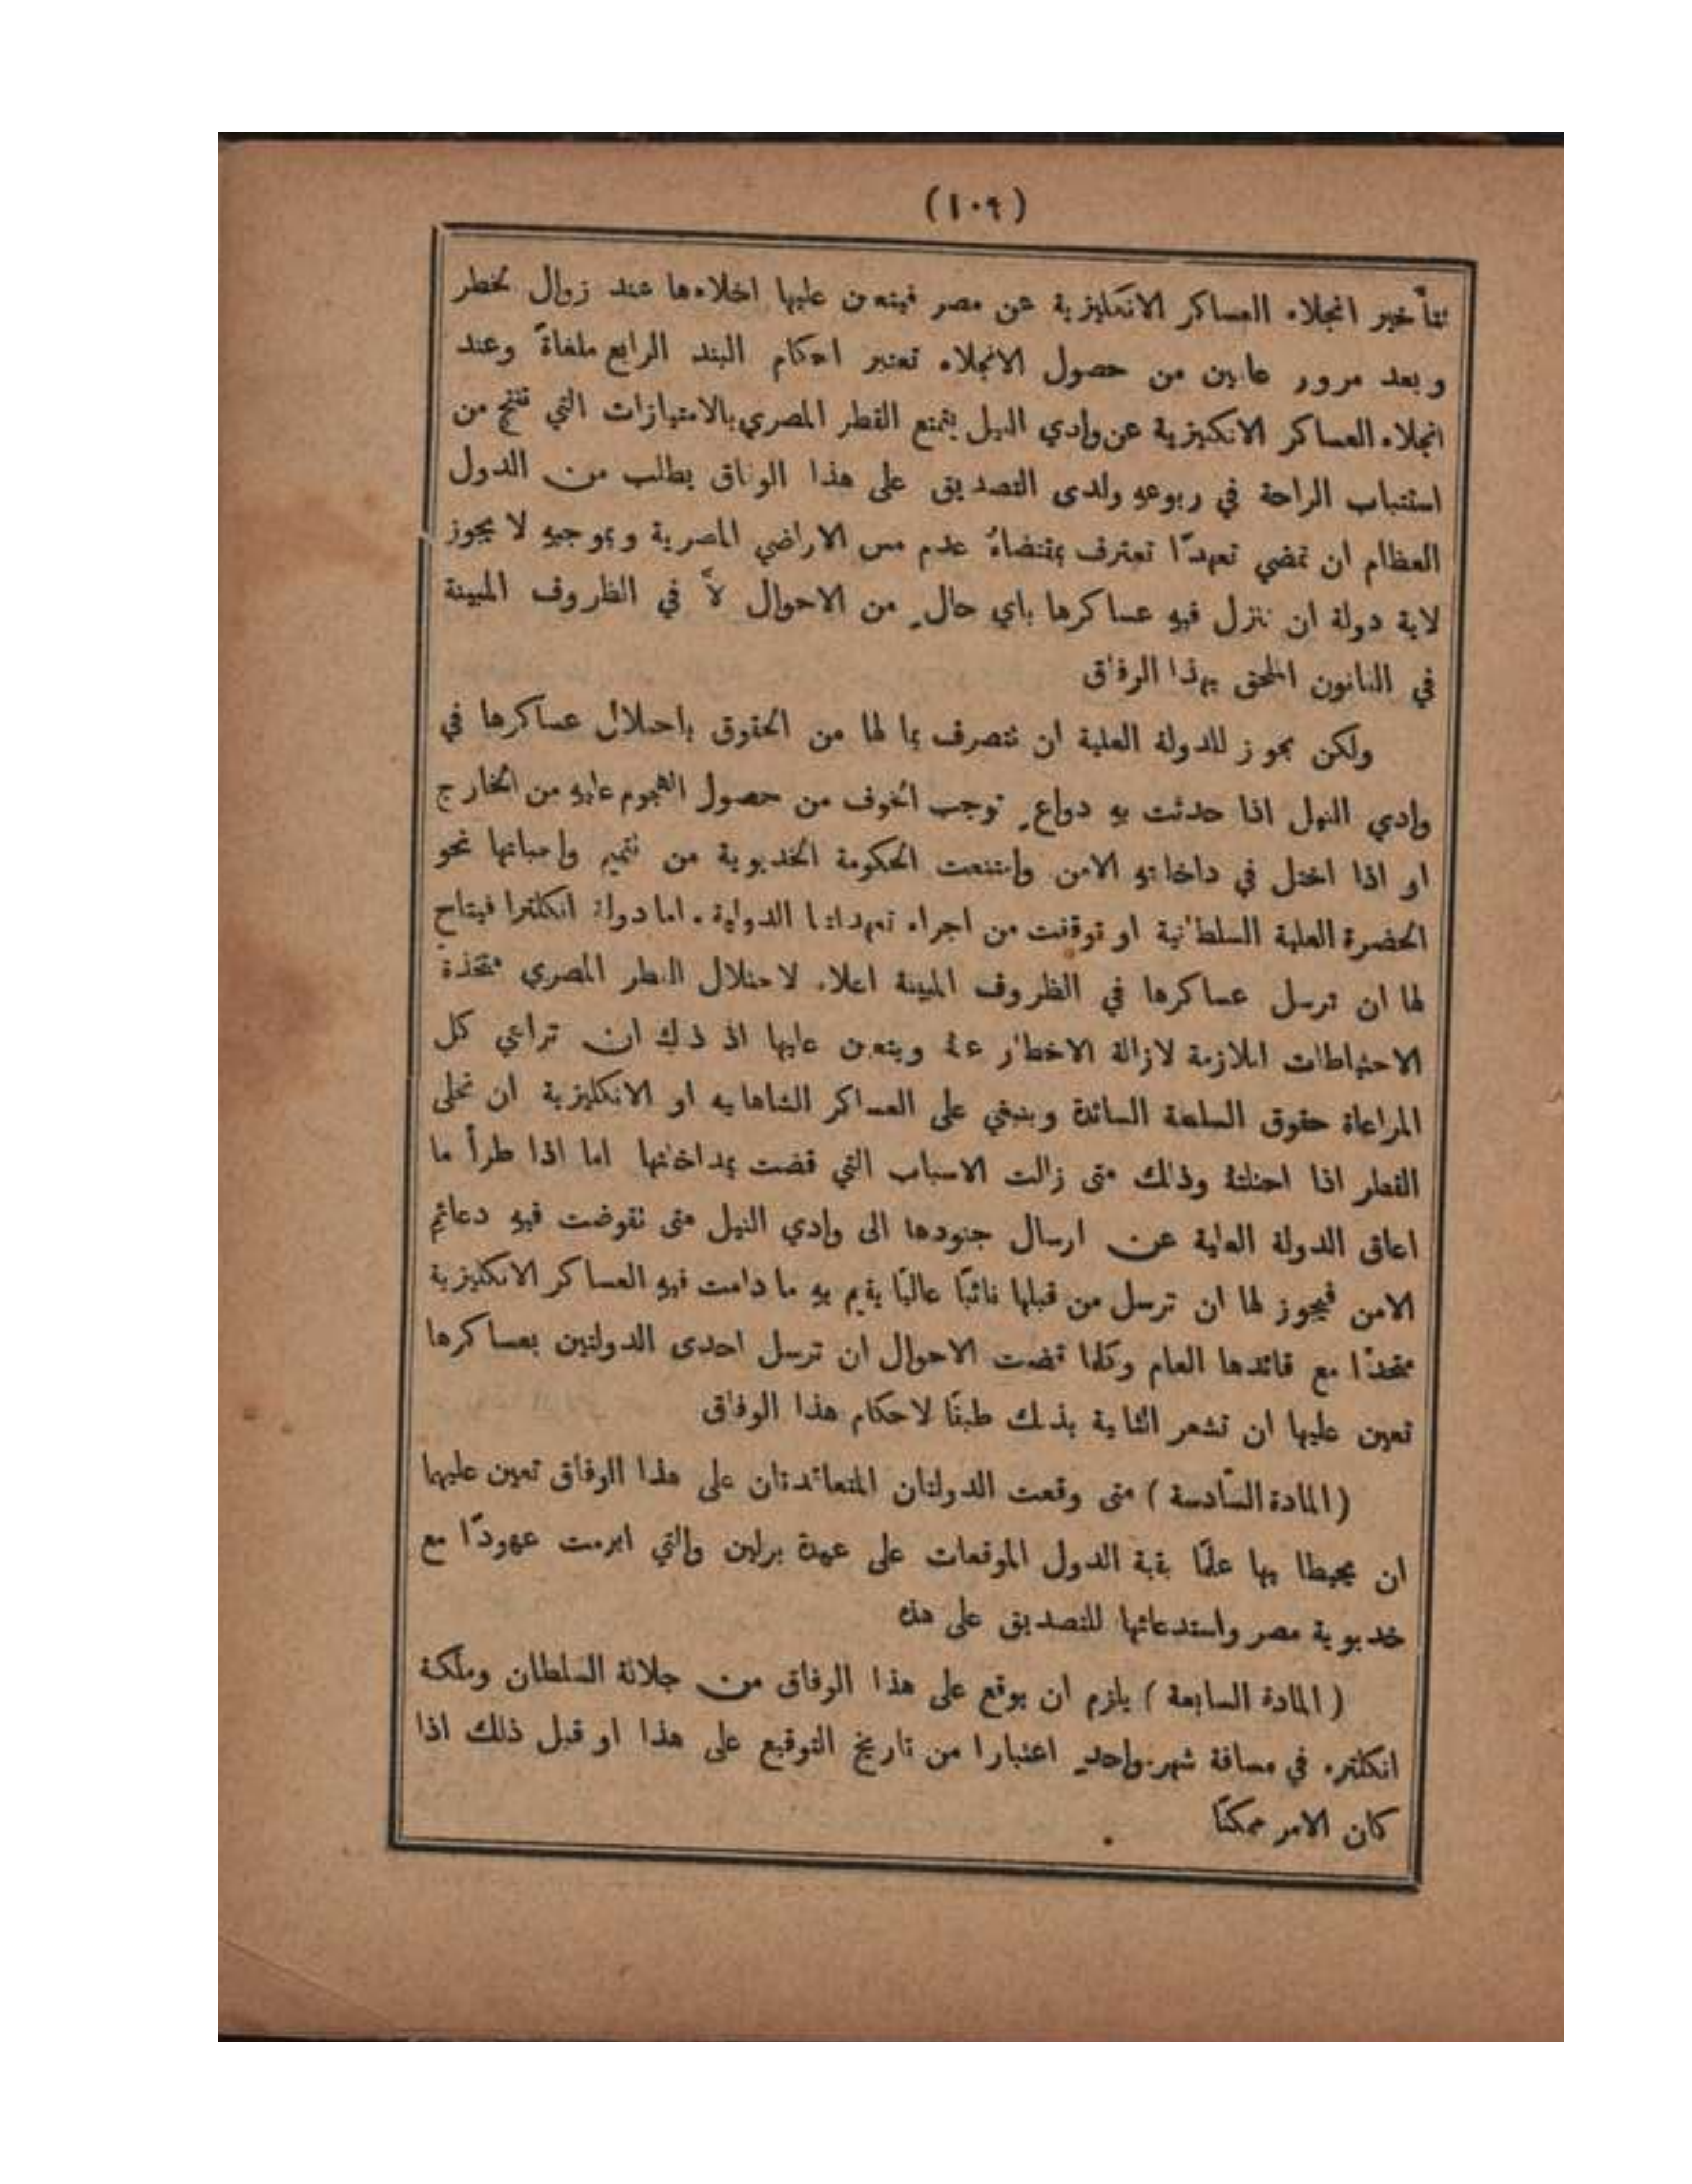 (١٠٩)
بتأخير انجلاء العساكر الانكليزية عن مصر فيتعين عليها اخلاءها عند زوال لخطر
وبعد مرور عامين من حصول الانجلاء تعتبر احكام البند الرابع ملغاةً وعند
انجلاء العساكر الانكيزية عن وادي النيل يتمتع القطر المصري بالامتيازات التي تنتج من
استتباب الراحة في ربوعهِ ولدى التصديق على هذا الوفاق يطلب من الدول
العظام ان تمضي تعهدًا تعترف بمقتضاهُ عدم مس الاراضي المصرية وبموجبهِ لا يجوز
لاية دولة ان تنزل فيهِ عساكرها باي حالٍ من الاحوال لاَّ في الظروف المبينة
في القانون الملحق بهذا الوفاق
ولكن يجوز للدولة العلية ان تتصرف بما لها من الحقوق باحلال عساكرها في
وادي النيل اذا حدثت بهِ دواعٍ توجب الخوف من حصول الهجوم عليهِ من الخارج
او اذا اختل في داخليتهِ الامن وامتنعت الحكومة الخديوية من تتميم واجباتها نحو
الحضرة العلية السلطانية او توقفت من اجراء تعهداتها الدولية . اما دولة انكلترا فيتاح
لها ان ترسل عساكرها في الظروف المبينة اعلاه لاحتلال القطر المصري متخذة
الاحتياطات اللازمة لازالة الاخطار عنهُ ويتعين عليها اذ ذاك ان تراعي كل
المراعاة حقوق السلطة السائدة وينبغي على العساكر الشاهانيه او الانكليزية ان تخلى
القطر اذا احتلتهُ وذلك متى زالت الاسباب التي قضت بمداخلتها اما اذا طرأ ما
اعاق الدولة العلية عن ارسال جنودها الى وادي النيل متى تقوضت فيهِ دعائم
الامن فيجوز لها ان ترسل من قبلها نائبًا عاليًا يقيم بهِ ما دامت فيهِ العساكر الانكليزية
متحدًا مع قائدها العام وكلما قضت الاحوال ان ترسل احدى الدولتين بعساكرها
تعين عليها ان تشعر الثانية بذلك طبقًا لاحكام هذا الوفاق
( المادة السّادسة ) متى وقعت الدولتان المتعاقدتان على هذا الوفاق تعين عليهما
ان يحيطا بها علمًا بقية الدول الموقعات على عهدة برلين والتي ابرمت عهودًا مع
خديوية مصر واستدعائها للتصديق على هذه
( المادة السابعة ) يلزم ان يوقع على هذا الوفاق من جلالة السلطان وملكة
انكلتره في مسافة شهر واحدٍ اعتبارا من تاريخ التوقيع على هذا او قبل ذلك اذا
كان الامر ممكنًا .